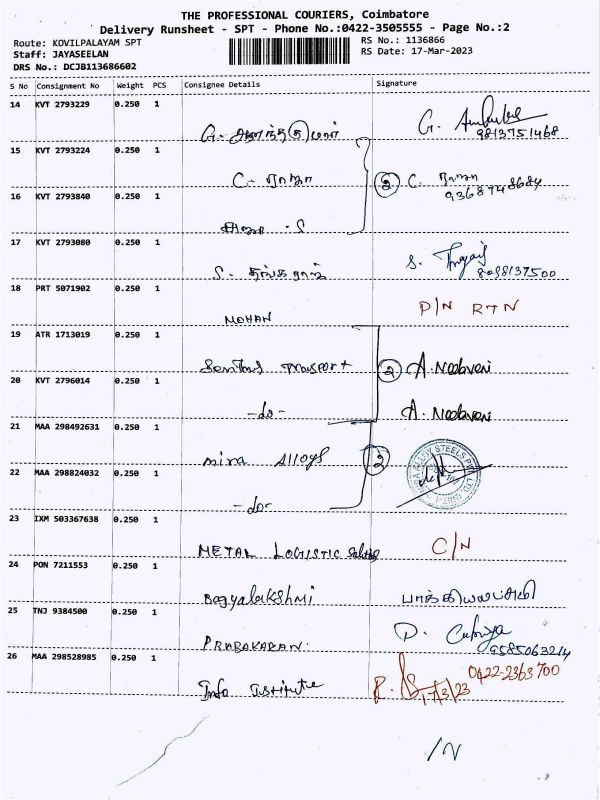 THE PROFESSIONAL COURIERS, Coimbatore
Delivery Runsheet - SPT - Phone No.:0422-3505555 - Page No.:2
Route: KOVILPALAYAM SPT
Staff: JAYASEELAN
DRS No.: DCJB113686602
RS No.: 1136866
RS Date: 17-Mar-2023
S No Consignment No Weight PCS Consignee Details Signature
14 KVT 2793229 0.250 1
G. 9813751468
15 KVT 2793224 0.250 1
C. ராஜா 2 C. ராஜா 9368748684
16 KVT 2793840 0.250 1
17 KVT 2793080 0.250 1
S. தங்கராஜ் S. 8098137500
18 PRT 5071902 0.250 1
MOHAN D/N RTN
19 ATR 1713019 0.250 1
Transport 2 A. Neelaveni
20 KVT 2796014 0.250 1
-do- A. Neelaveni
21 MAA 298492631 0.250 1
Mira Alloys 2
22 MAA 298824032 0.250 1
-do-
23 IXM 503367638 0.250 1
METAL LOGISTIC C/N
24 PON 7211553 0.250 1
Bagyalakshmi பாக்கியலட்சுமி
25 TNJ 9384500 0.250 1
PRABAKARAN. P. 9585063214
26 MAA 298528985 0.250 1
Info Institute R. 17/3/23 0422-2363700
/N